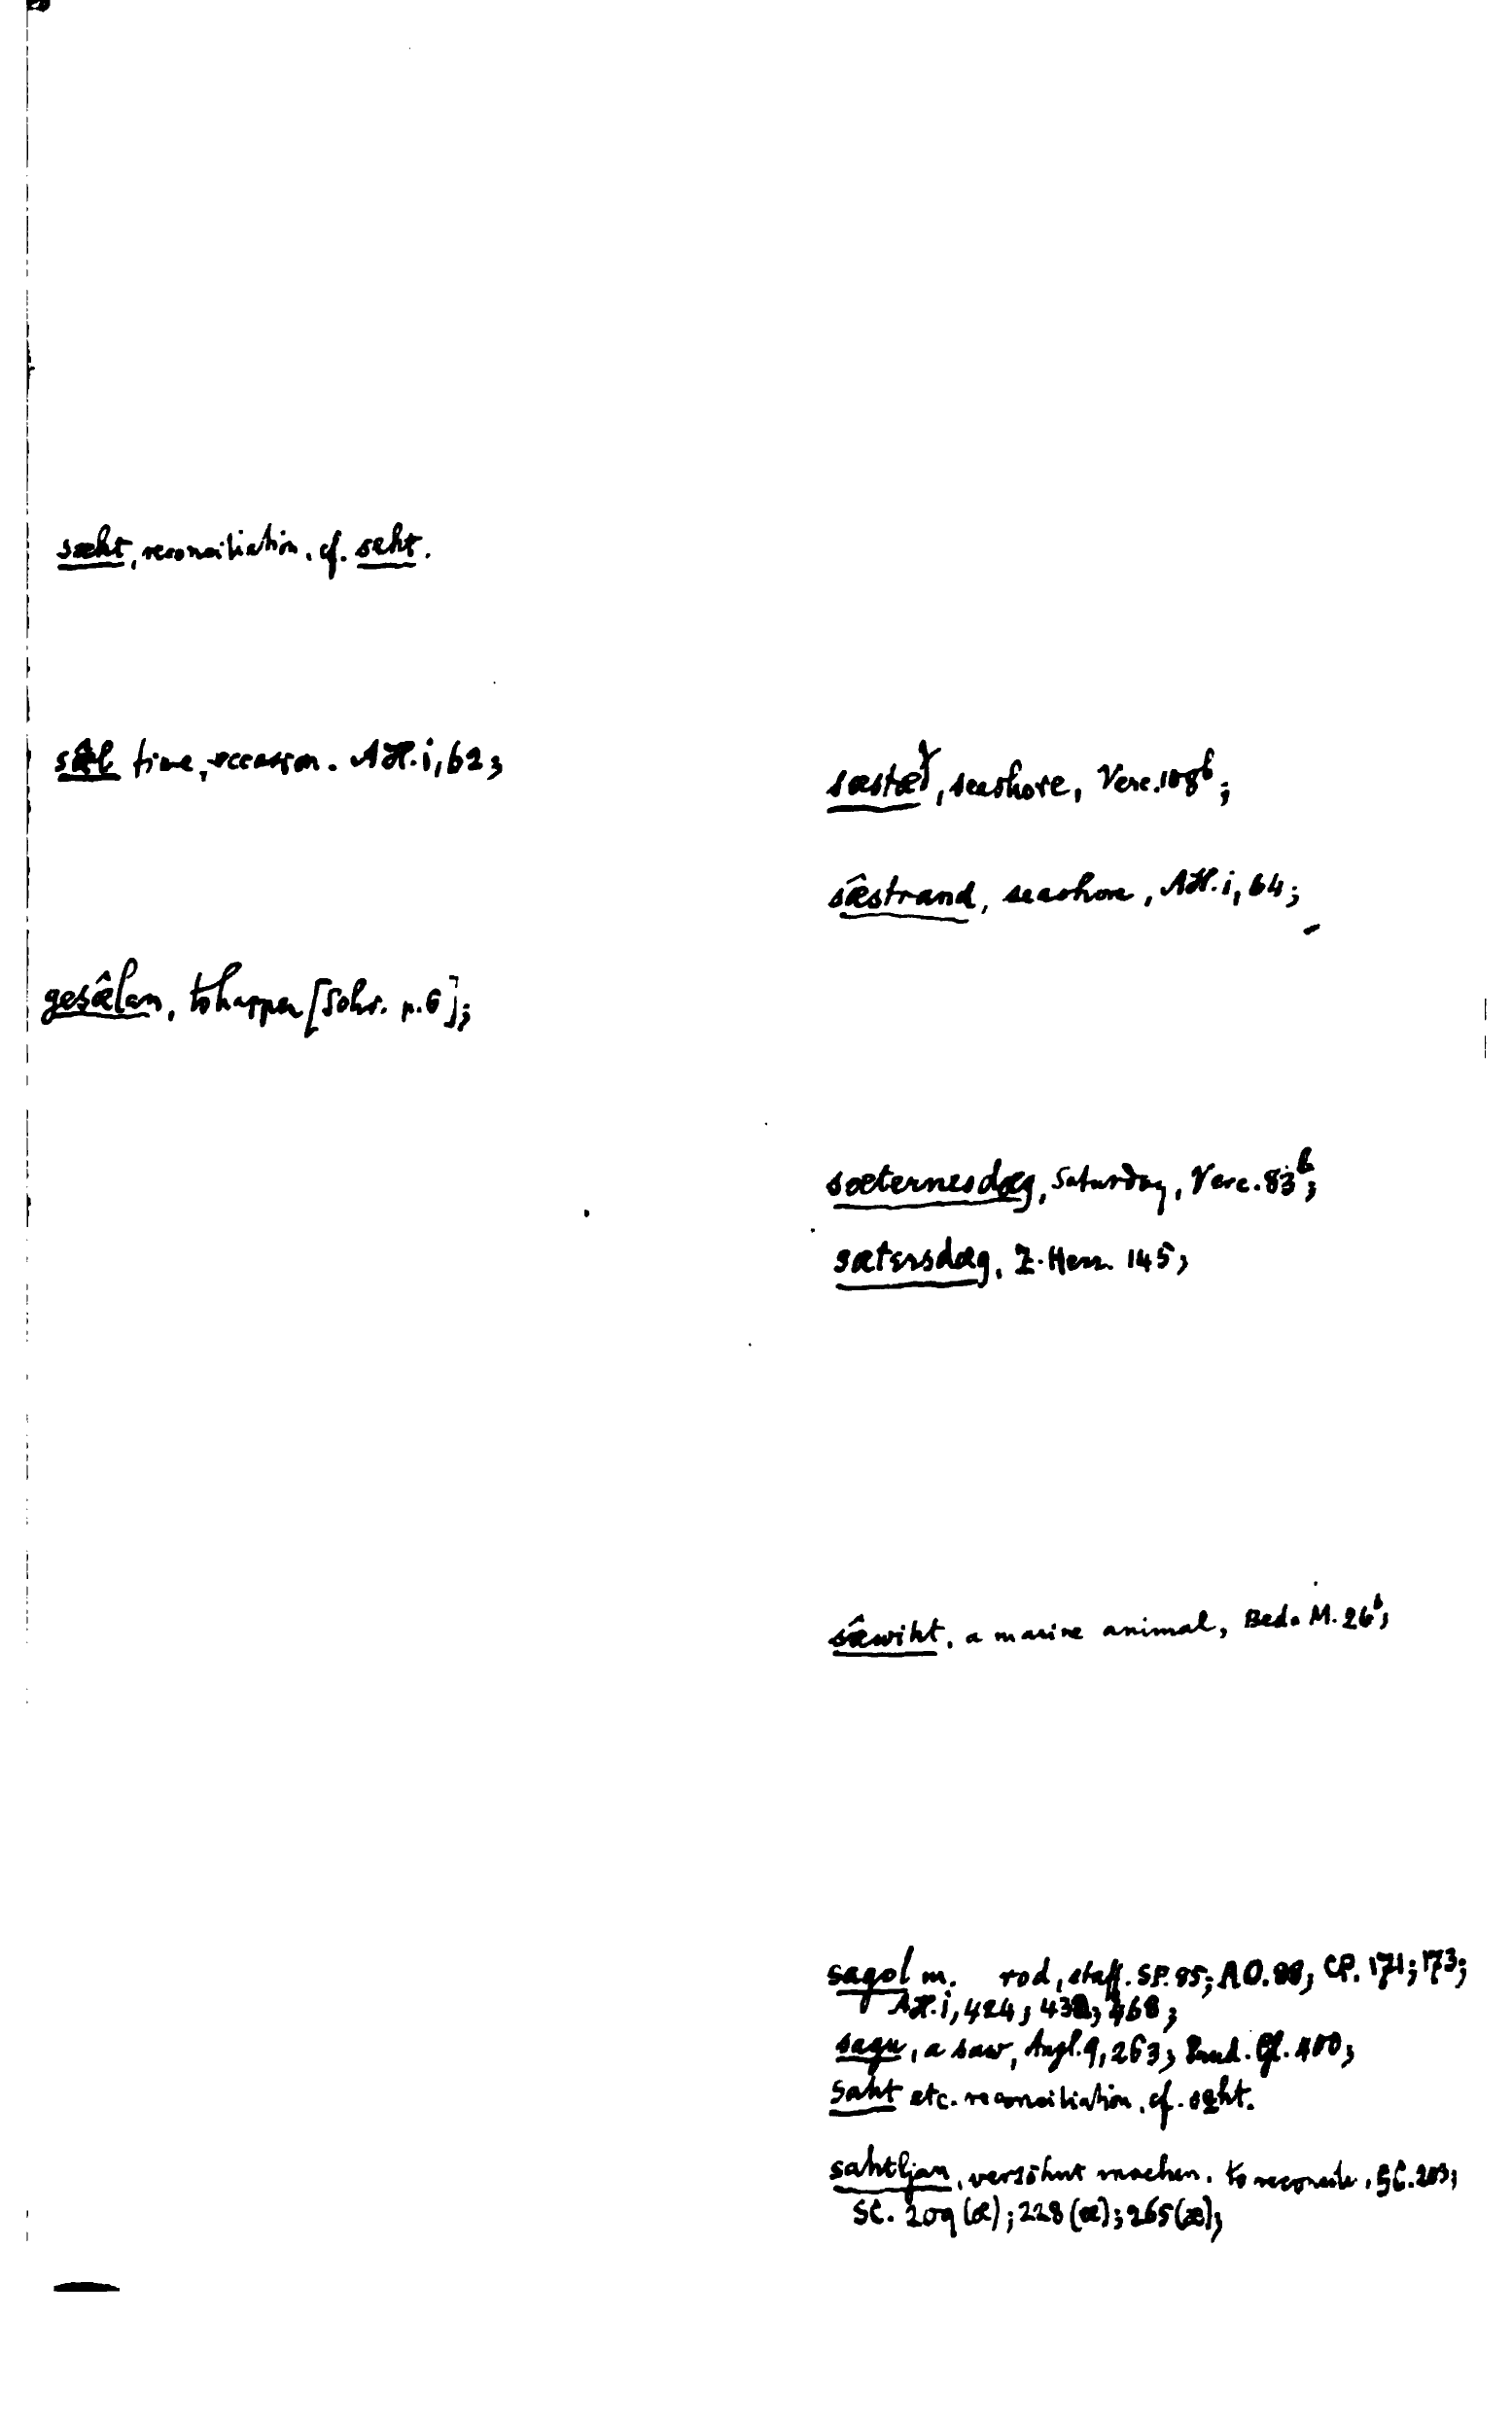 sæht, reconciliation. cf. seht.
sæ̂l time, occasion. AH.i,62;
gesæ̂lan, to happen [Sohr. p.6];
sæstæð, seashore, Verc.108b;
sæ̂strand, seashore, AH.i,64;
sæternesdæg, Saturday, Verc.83b;
sætersdæg, Z.Hem. 145;
sæ̂wiht, a marine animal, Bed. M.26b;
sagol m. rod, staff. SP.85; AO.88; CP. 171; 173;
AH.i,424; 432; 468;
sagu, a saw, Angl.9,263; Gl. 400;
saht etc. reconciliation, cf. seht.
sahtljan, versöhnt machen. to reconcile, SC.203;
SC. 209(æ); 228(æ); 265(æ);